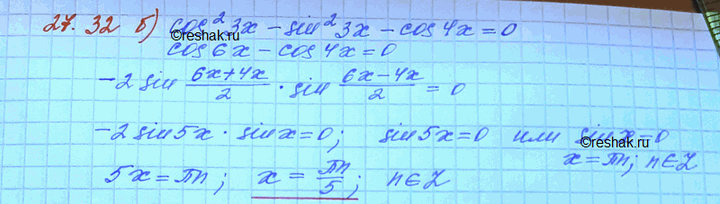 27.32 б) cos²3x - sin²3x - cos4x = 0
cos6x - cos4x = 0
-2 sin (6x+4x)/2 · sin (6x-4x)/2 = 0
-2 sin5x · sinx = 0; sin5x = 0 или sinx = 0
x = πn; n∈Z
5x = πn; x = πn/5; n∈Z
©reshak.ru